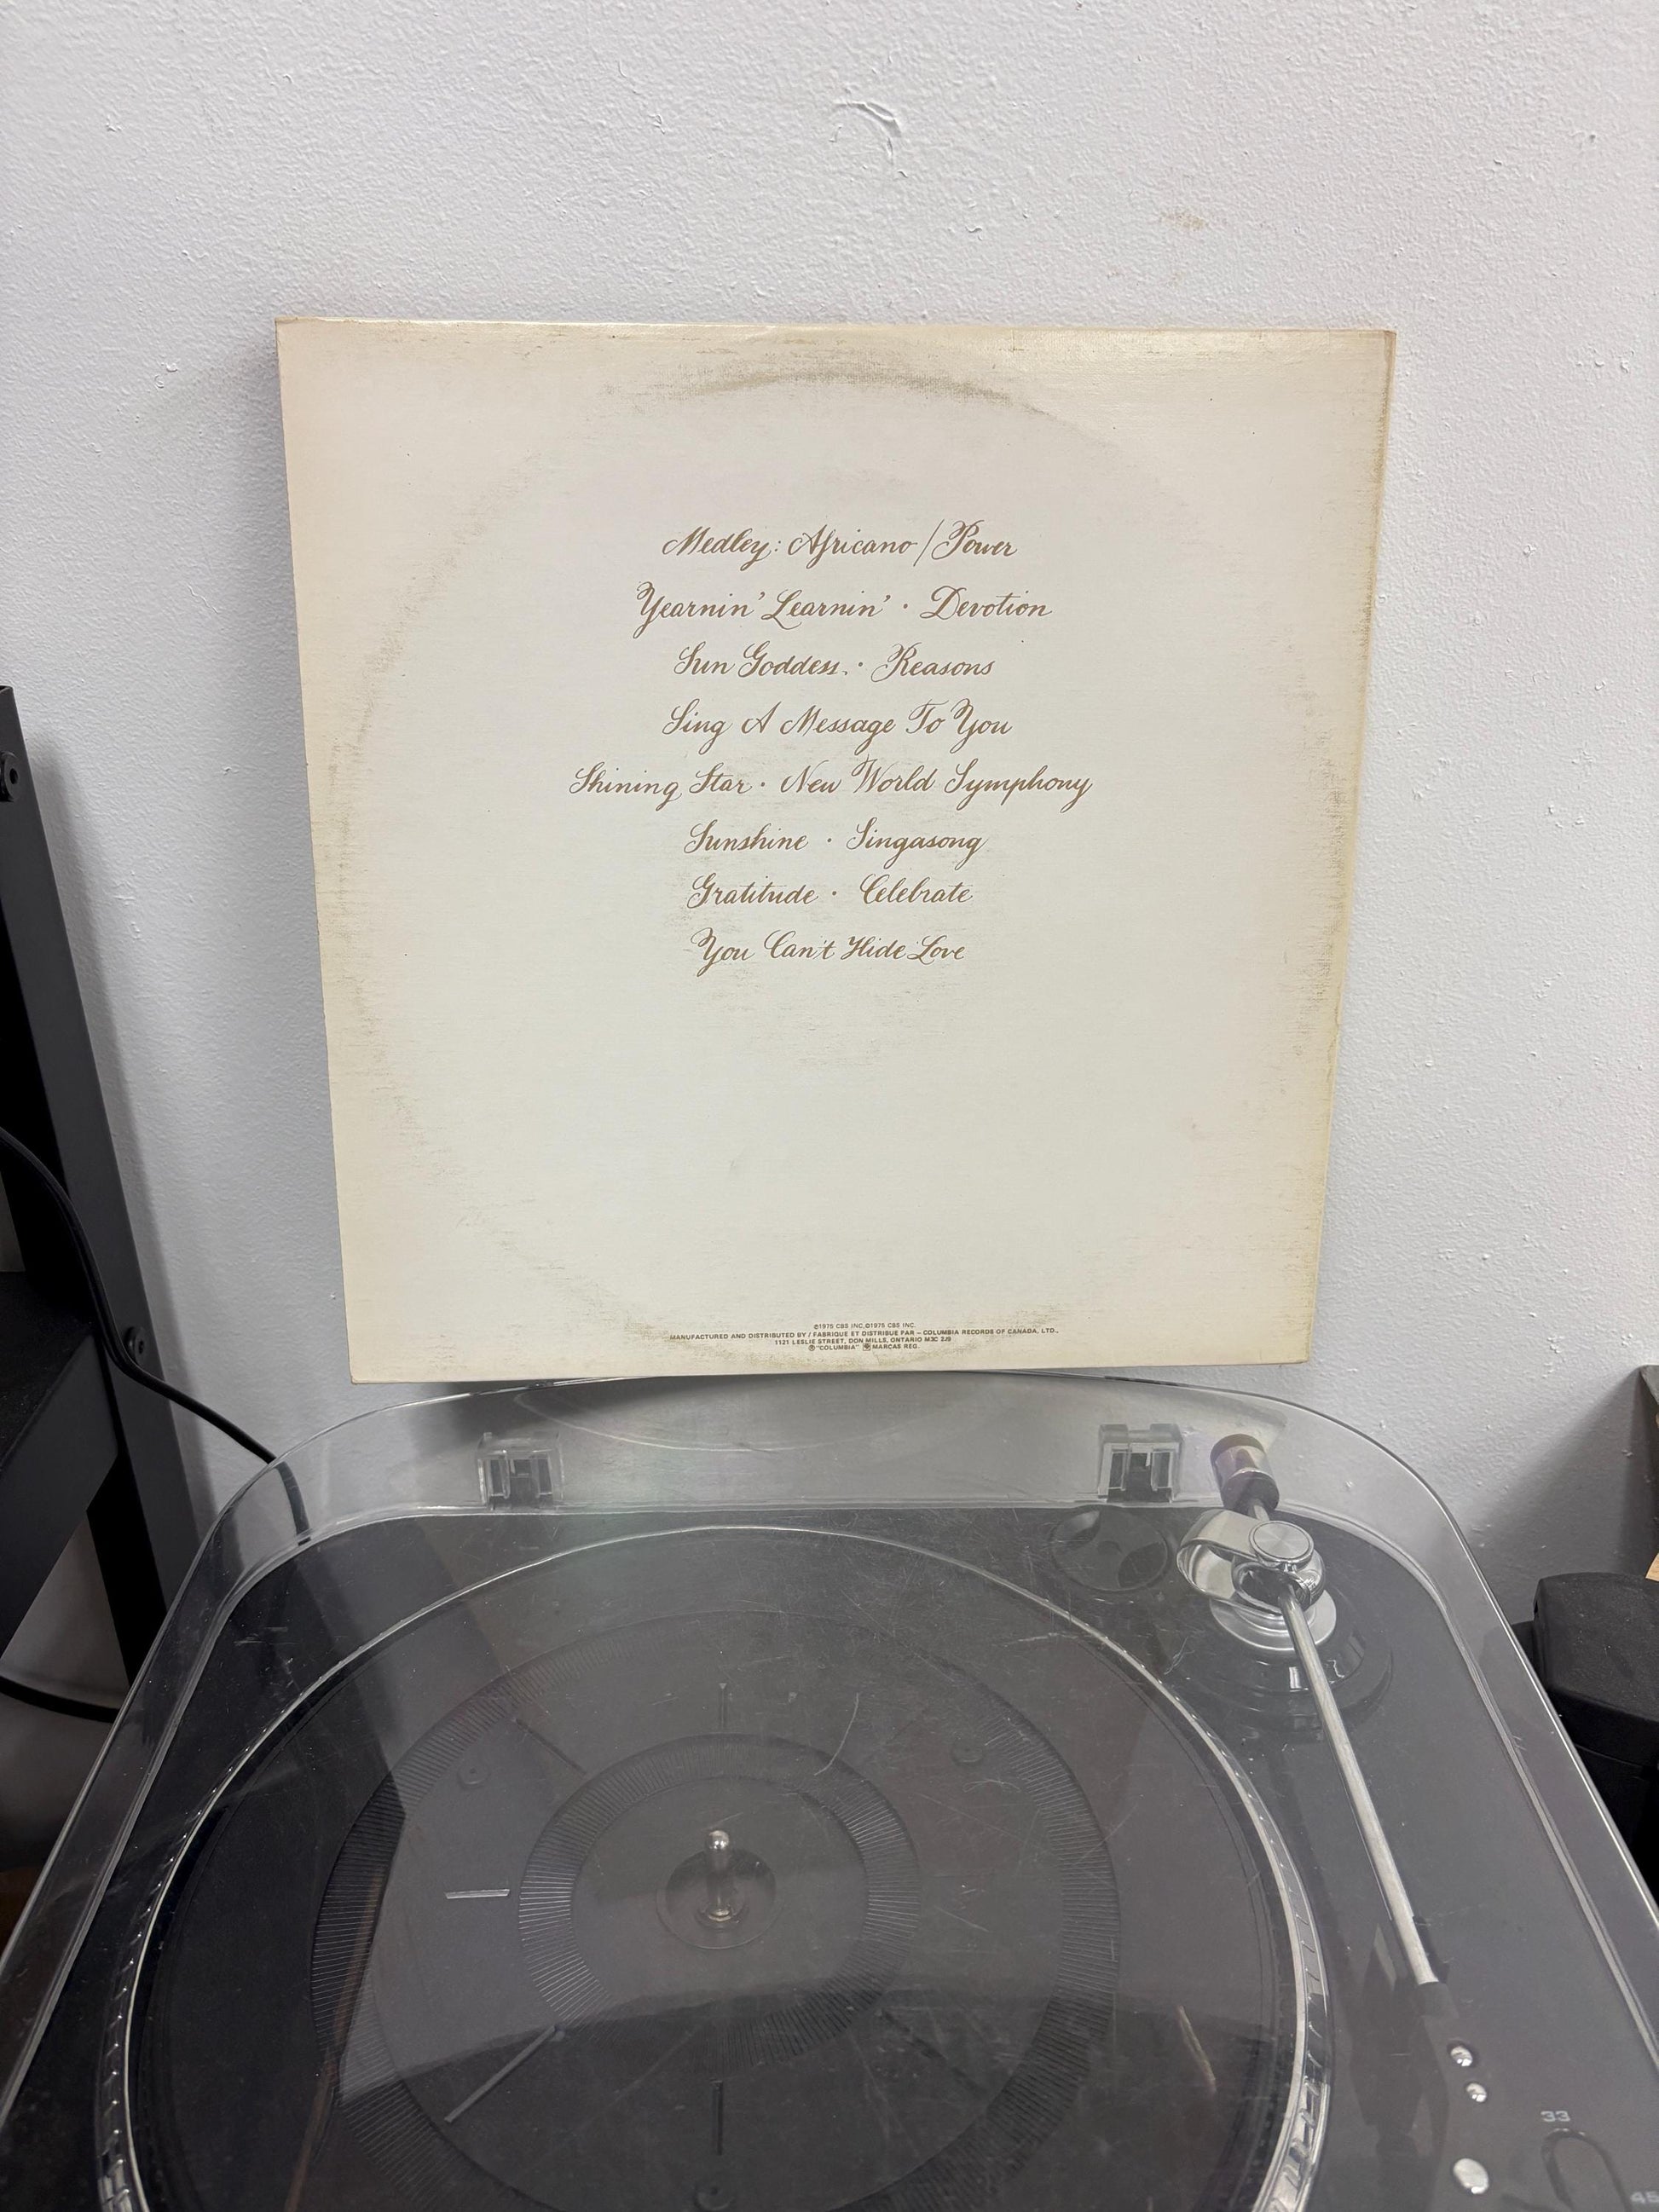 Medley: Africano / Power
Yearnin' Learnin' · Devotion
Sun Goddess · Reasons
Sing A Message To You
Shining Star · New World Symphony
Sunshine · Singasong
Gratitude · Celebrate
You Can't Hide Love
℗1975 CBS INC.©1975 CBS INC.
MANUFACTURED AND DISTRIBUTED BY / FABRIQUE ET DISTRIBUE PAR – COLUMBIA RECORDS OF CANADA, LTD.,
1121 LESLIE STREET, DON MILLS, ONTARIO M3C 2J9
® "COLUMBIA" MARCAS REG.
33
45